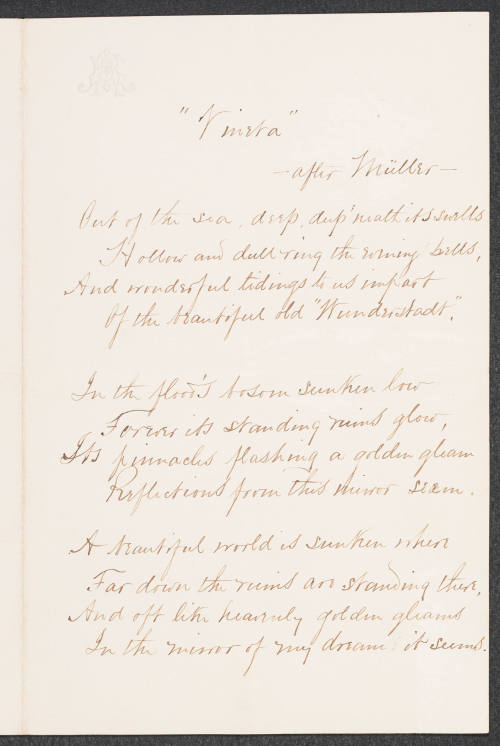 "Vineta"
— after Müller —
Out of the sea, deep, deep 'neath its swells
Hollow and dull ring the evening bells,
And wonderful tidings to us impart
Of the beautiful old "Wunderstadt".
In the flood's bosom sunken low
Forever its standing ruins glow,
Its pinnacles flashing a golden gleam
Reflections from this mirror seem.
A beautiful world is sunken where
Far down the ruins are standing there,
And oft like heavenly golden gleams
In the mirror of my dream it seems.